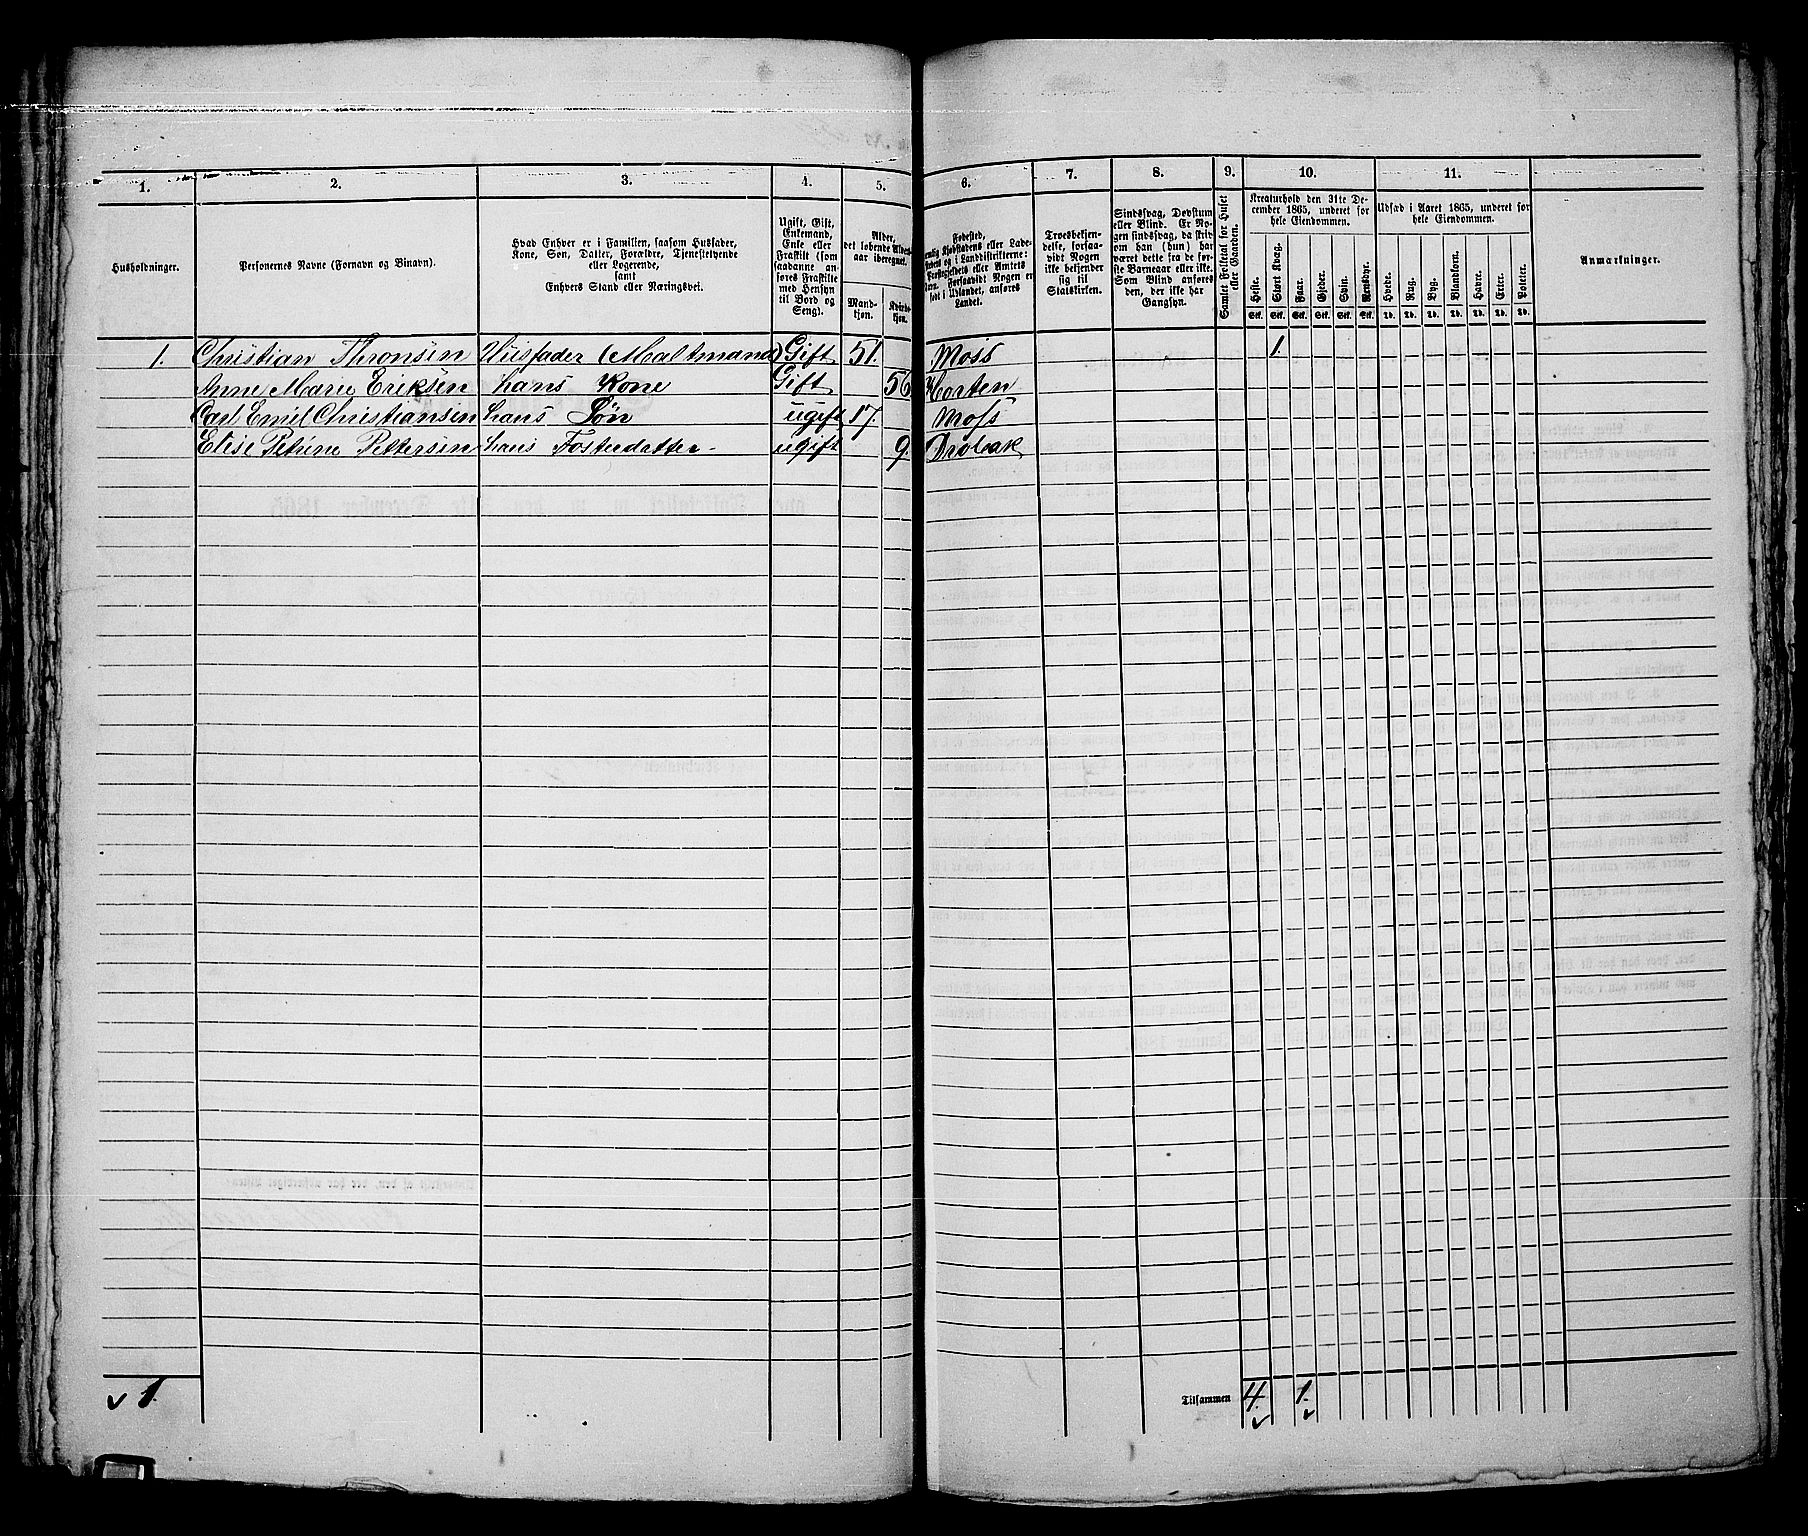 1. 2. 3. 4. 5. 6. 7. 8. 9. 10. 11.
Husholdninger.
Personernes Navne (Fornavn og Binavn).
Hvad Enhver er i Familien, saasom Husfader,
Kone, Søn, Datter, Forældre, Tjenestetyende
eller Logerende,
samt
Enhvers Stand eller Næringsvei.
Ugift, Gift,
Enkemand,
Enke eller
Fraskilt (som
saadanne an-
føres Fraskilte
med Hensyn
til Bord og
Seng).
Alder,
det løbende Alders-
aar iberegnet.
Mand-
kjøn.
Kvinde-
kjøn.
Fødested,
nemlig Kjøbstadens eller Lade-
stedets og i Landdistrikterne:
Præstegjeldets eller Amtets
Navn. Forsaavidt Nogen er
født i Udlandet, anføres
Landet.
Troesbekjen-
delse, forsaa-
vidt Nogen
ikke bekjender
sig til
Statskirken.
Sindssvag, Døvstum
eller Blind. Er No-
gen sindssvag, da skriv
om han (hun) har
været dette fra de før-
ste Barneaar af eller ei.
Som Blind anføres
den, der ikke har
Gangsyn.
Samlet Folketal for Huset
eller Gaarden.
Kreaturhold den 31te De-
cember 1865, underet for
hele Eiendommen.
Heste. Stort Kvæg. Faar. Gjeder. Svin. Rensdyr.
Stk. Stk. Stk. Stk. Stk. Stk.
Udsæd i Aaret 1865, underet for
hele Eiendommen.
Hvede. Rug. Byg. Blandkorn. Havre. Erter. Poteter.
Td. Td. Td. Td. Td. Td. Td.
Anmærkninger.
1. Christian Thronsen Huusfader (Maltmand) Gift 51. Moss 1.
Anne Marie Eriksen hans Kone Gift 56. Horten
Carl Emil Christiansen hans Søn ugift 17. Moss
Elise Petrine Pettersen hans Fosterdatter ugift 9. Drøbak
1. Tilsammen 4. 1.